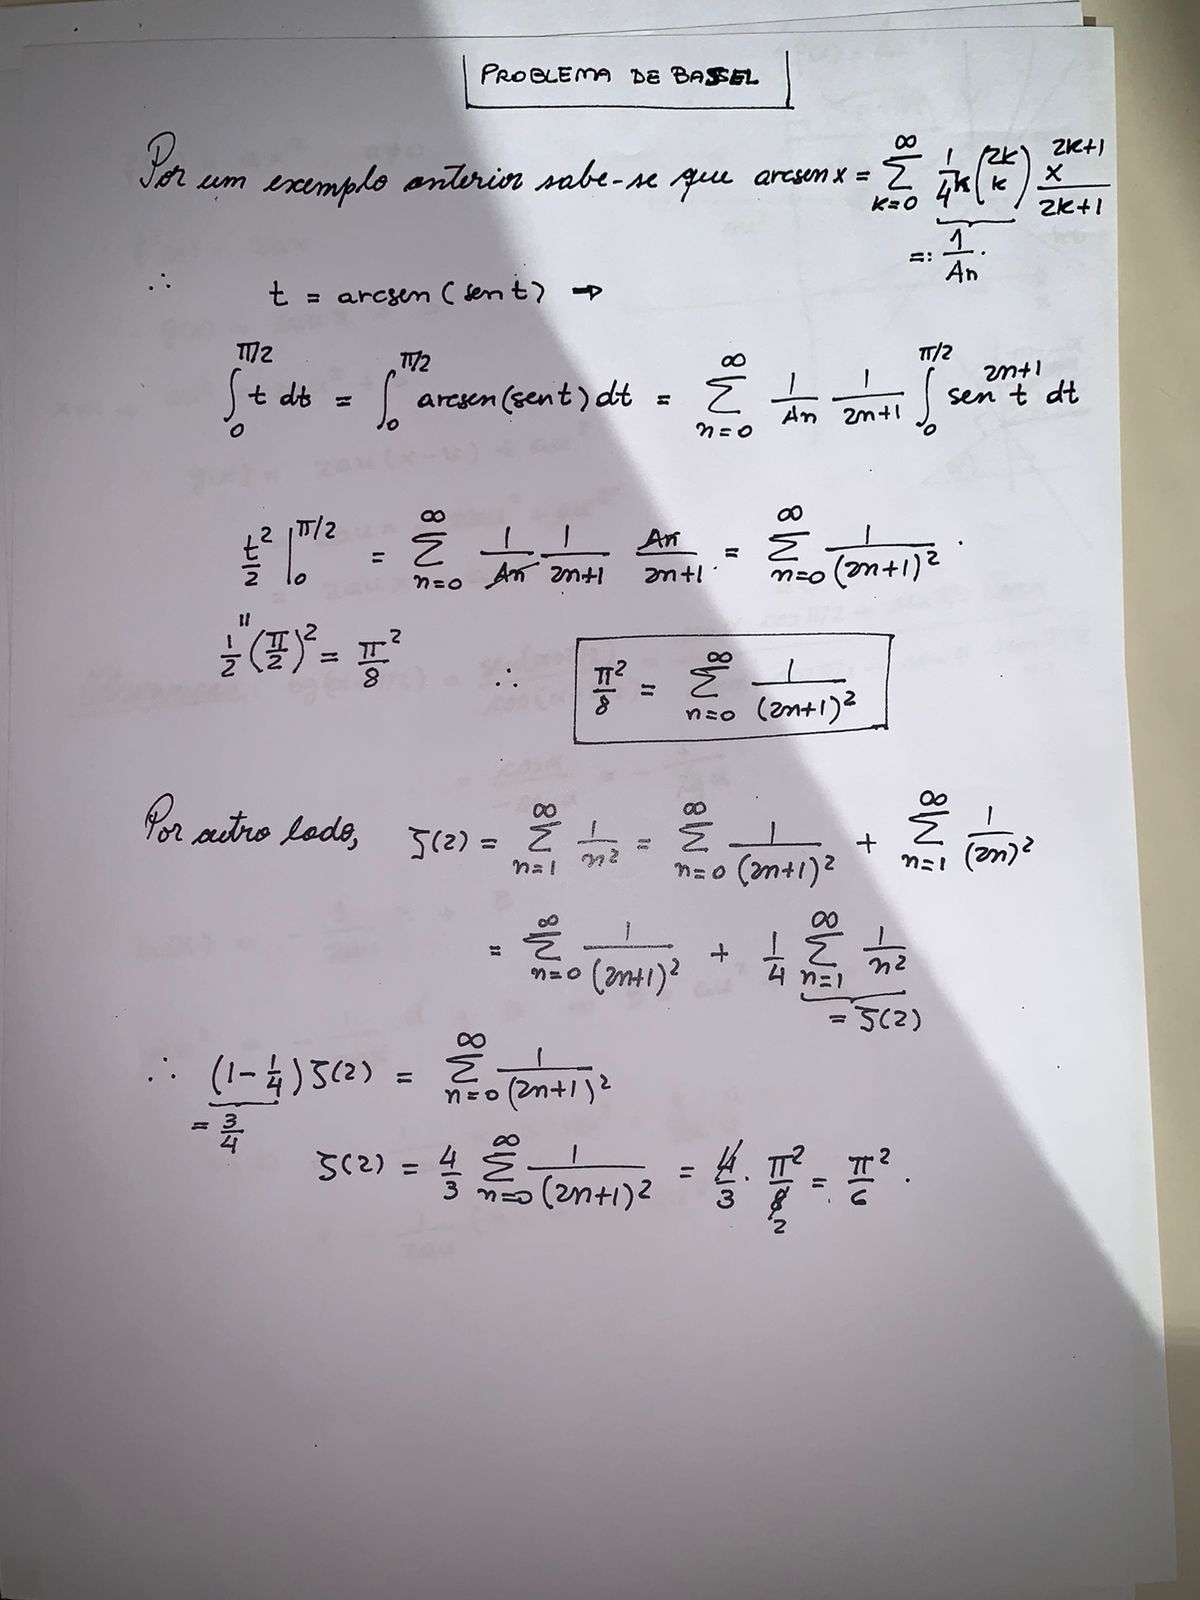 PROBLEMA DE BASSEL
Por um exemplo anterior sabe-se que arcsen x = ∑_{k=0}^{∞} 1/4^k (2k k) x^{2k+1}/(2k+1)
=: 1/An.
∴ t = arcsen(sen t) →
∫_0^{π/2} t dt = ∫_0^{π/2} arcsen(sen t) dt = ∑_{n=0}^{∞} 1/An 1/(2n+1) ∫_0^{π/2} sen^{2n+1} t dt
t²/2 |_0^{π/2} = ∑_{n=0}^{∞} 1/An 1/(2n+1) An/(2n+1) = ∑_{n=0}^{∞} 1/(2n+1)².
"
1/2 (π/2)² = π²/8 ∴ π²/8 = ∑_{n=0}^{∞} 1/(2n+1)²
Por outro lado, ζ(2) = ∑_{n=1}^{∞} 1/n² = ∑_{n=0}^{∞} 1/(2n+1)² + ∑_{n=1}^{∞} 1/(2n)²
= ∑_{n=0}^{∞} 1/(2n+1)² + 1/4 ∑_{n=1}^{∞} 1/n²
= ζ(2)
∴ (1 - 1/4) ζ(2) = ∑_{n=0}^{∞} 1/(2n+1)²
= 3/4
ζ(2) = 4/3 ∑_{n=0}^{∞} 1/(2n+1)² = 4/3 · π²/8 = π²/6.
2